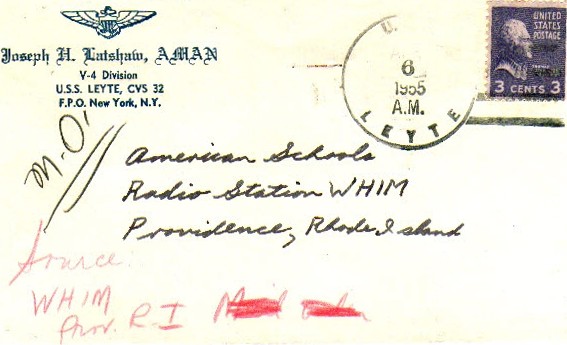 Joseph H. Latshaw, AMAN
V-4 Division
U.S.S. LEYTE, CVS 32
F.P.O. New York, N.Y.
U.
6
1955
A.M.
LEYTE
UNITED
STATES
POSTAGE
3 CENTS 3
M.O.
American Schools
Radio Station WHIM
Providence, Rhode Island
Source:
WHIM
Prov. R.I